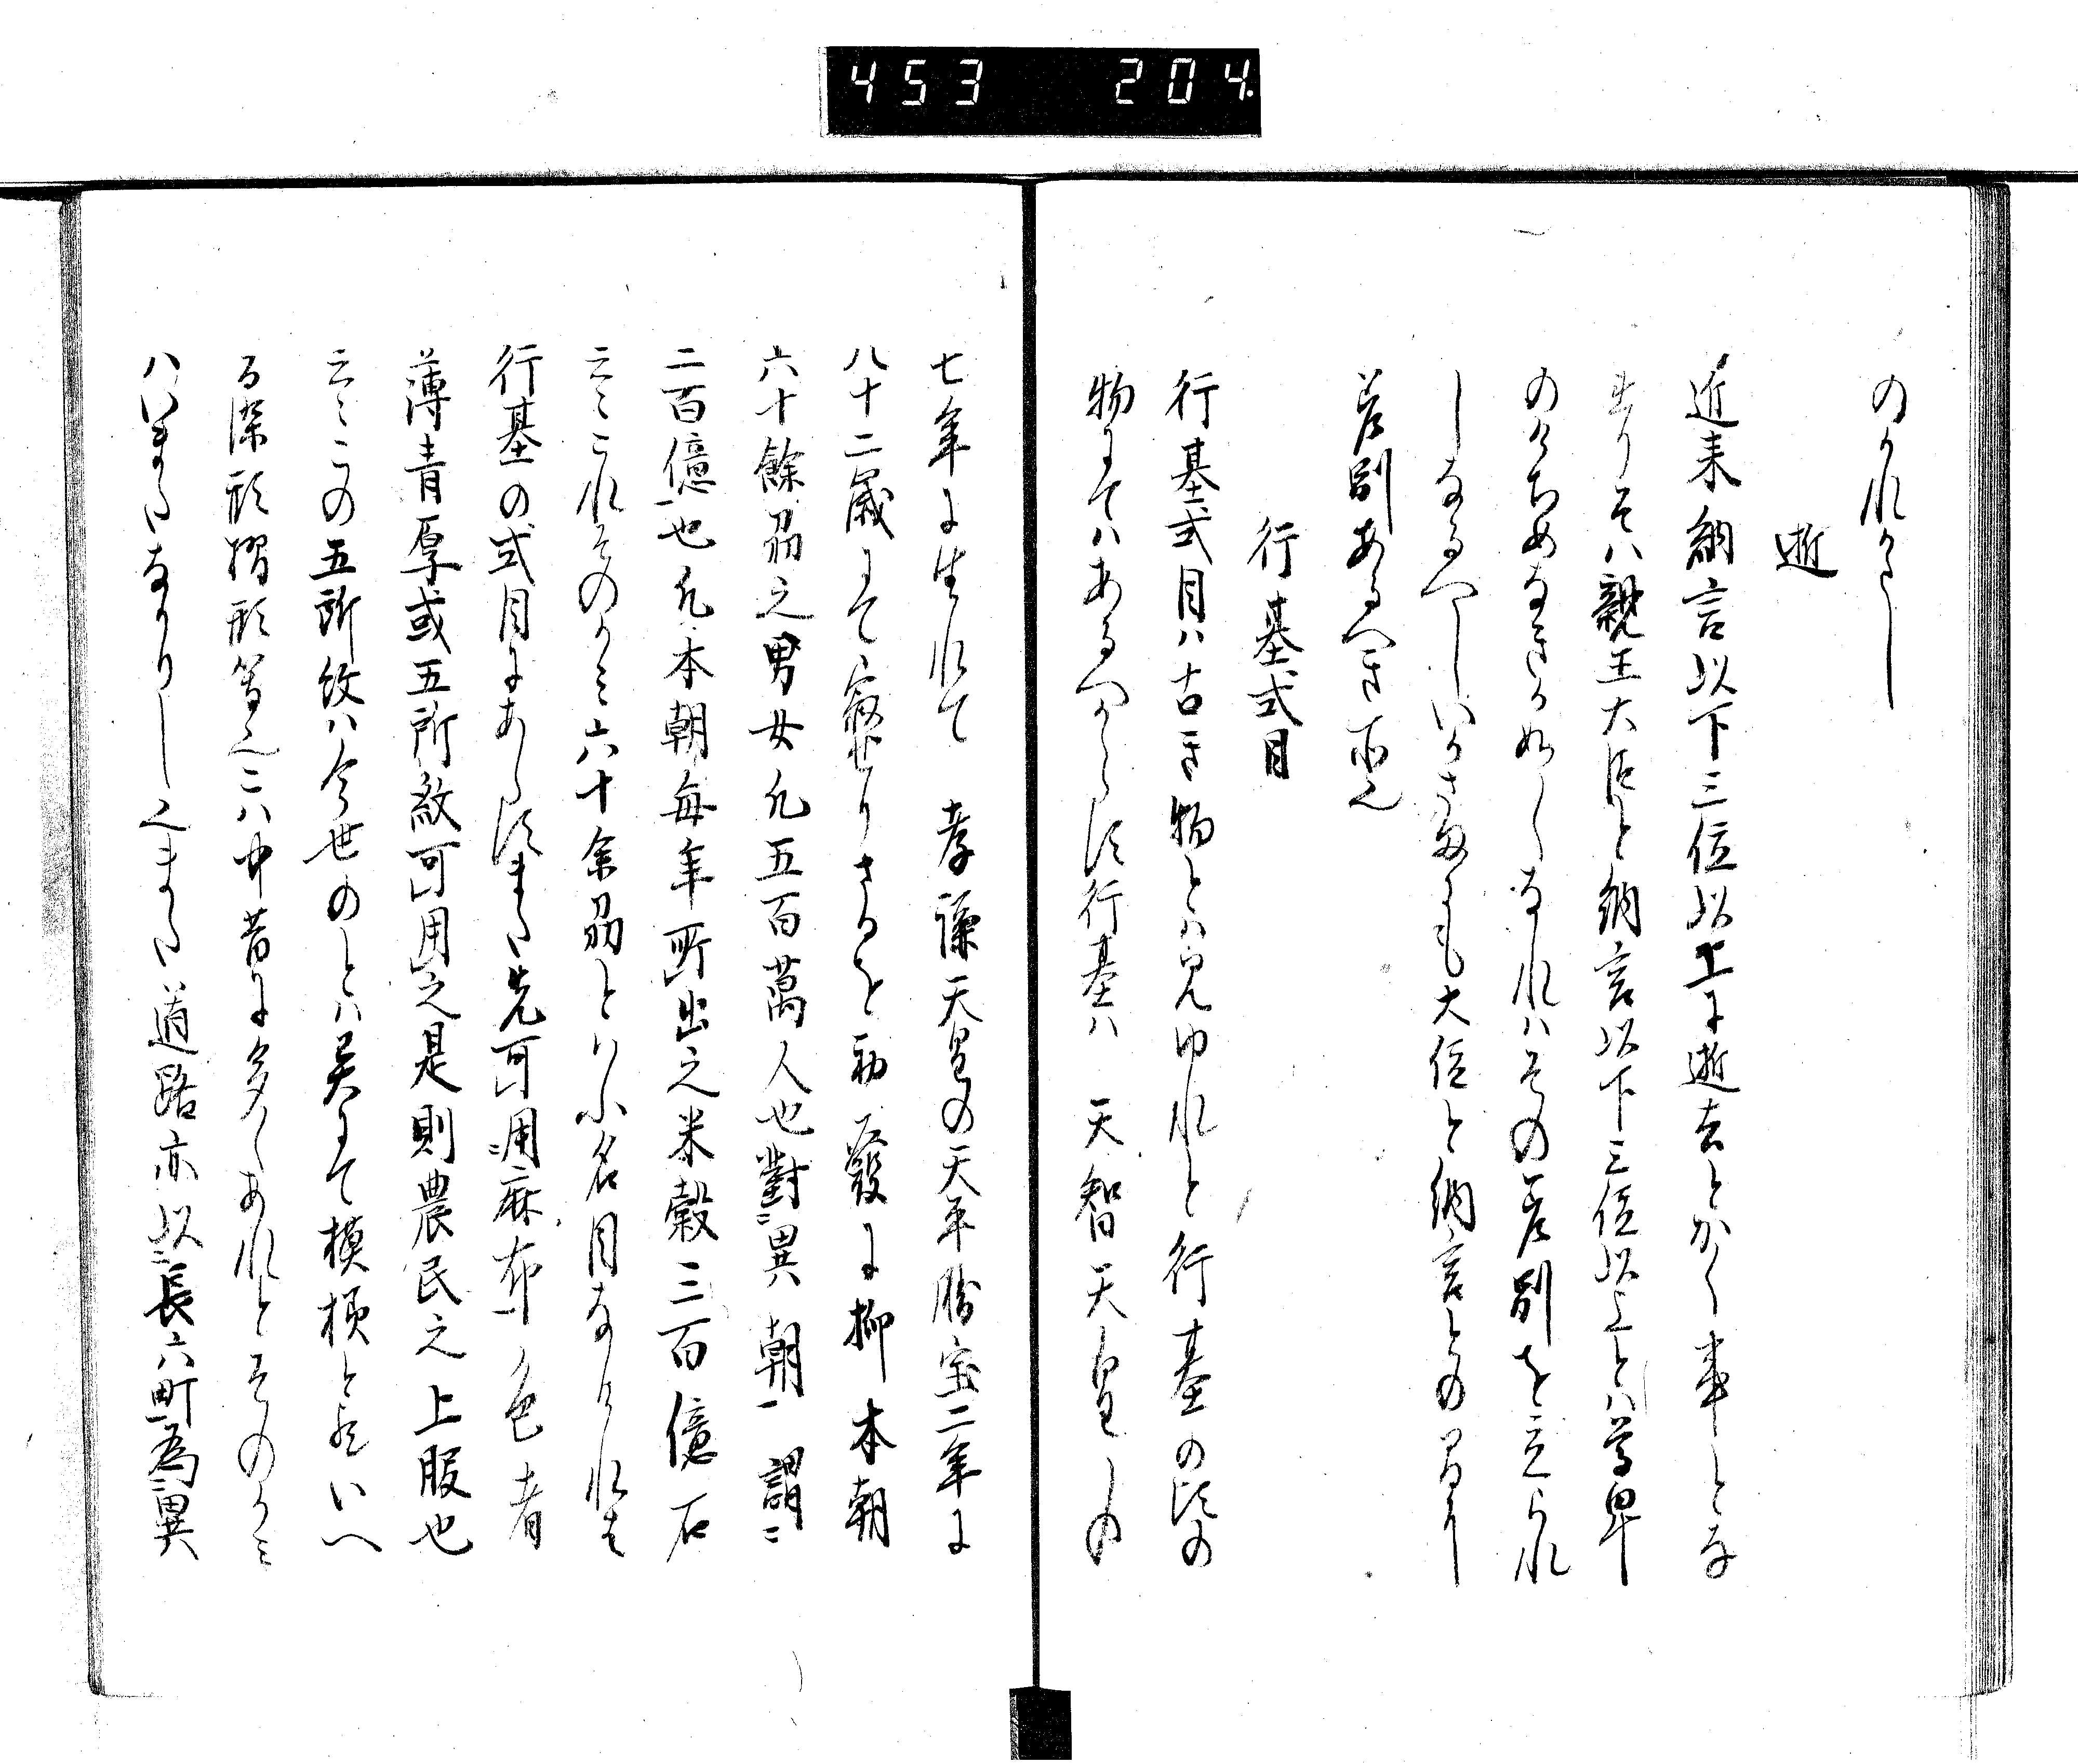 453 204.
のかれかたし
逝
近来納言以下三位以上に逝去とかく事とな
れりそは親王大臣と納言以下三位以上とは尊卑
のけちめなきか如くなれはその差別を立られ
しなるへしいかさまにも大臣と納言との間に
差別あるへき事也
行基式目
行基式目は古き物とは見ゆれと行基の頃の
物にてはあるへからす行基は 天智天皇の
七年に生れて 孝謙天皇の天平勝宝二年に
八十二歳にて寂せりさるを初發に抑本朝
六十餘州之男女凡五百萬人也對異朝謂
二百億也凡本朝毎年所出之米穀三百億石
云々これそのかみ六十余州といふ名目なかりけれは
行基の式目にあらすまた先可用麻布色者
薄青厚或五所紋可用之是則農民之上服也
云々この五所紋は今世のとは異にて模様と心えいへ
る染形摺形等也こは中昔に多くあれとそのかみ
はいまたなかりし也また道路亦以長六町為異